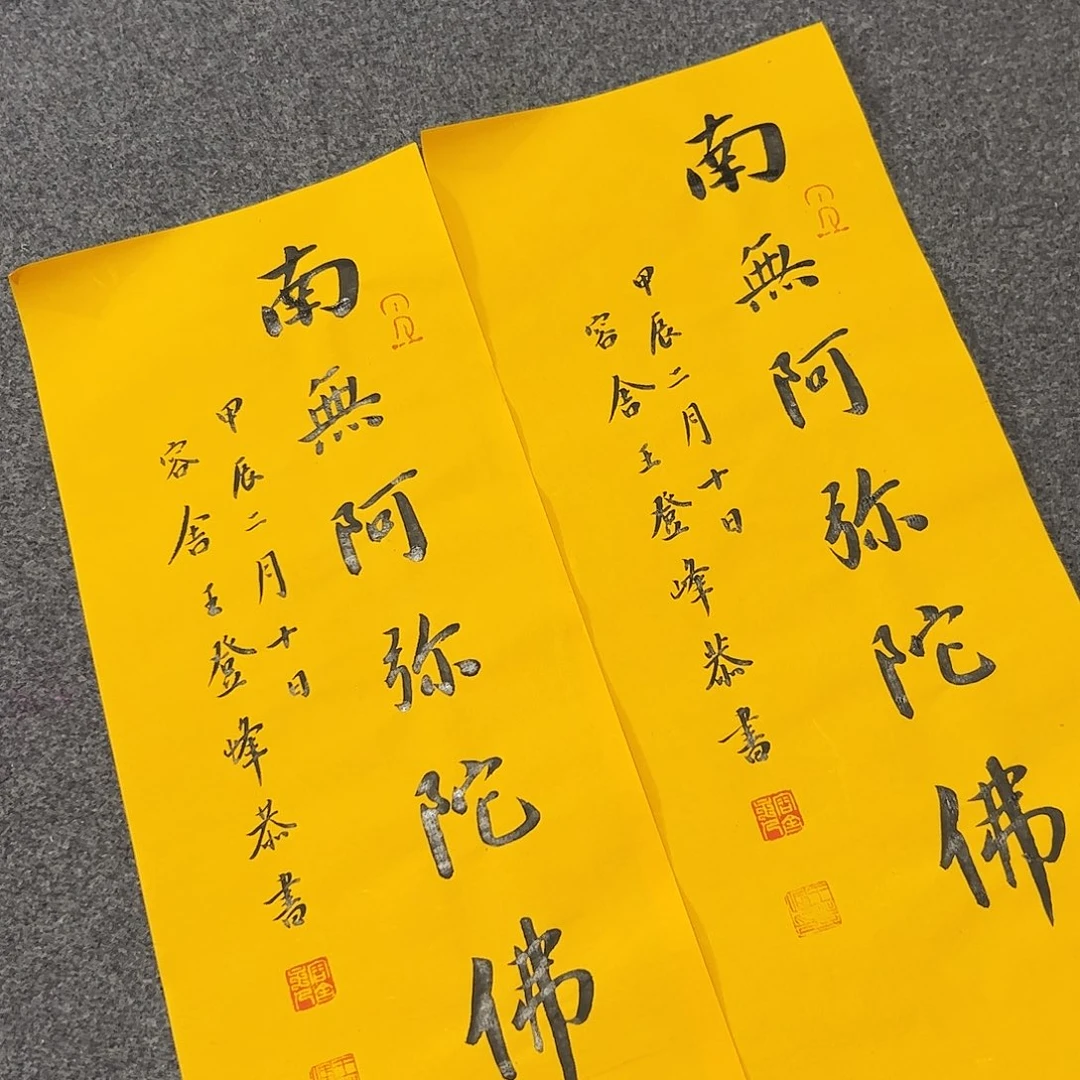 南無阿弥陀佛
甲辰二月十日
容舍王登峰恭書
南無阿弥陀佛
甲辰二月十日
容舍王登峰恭書